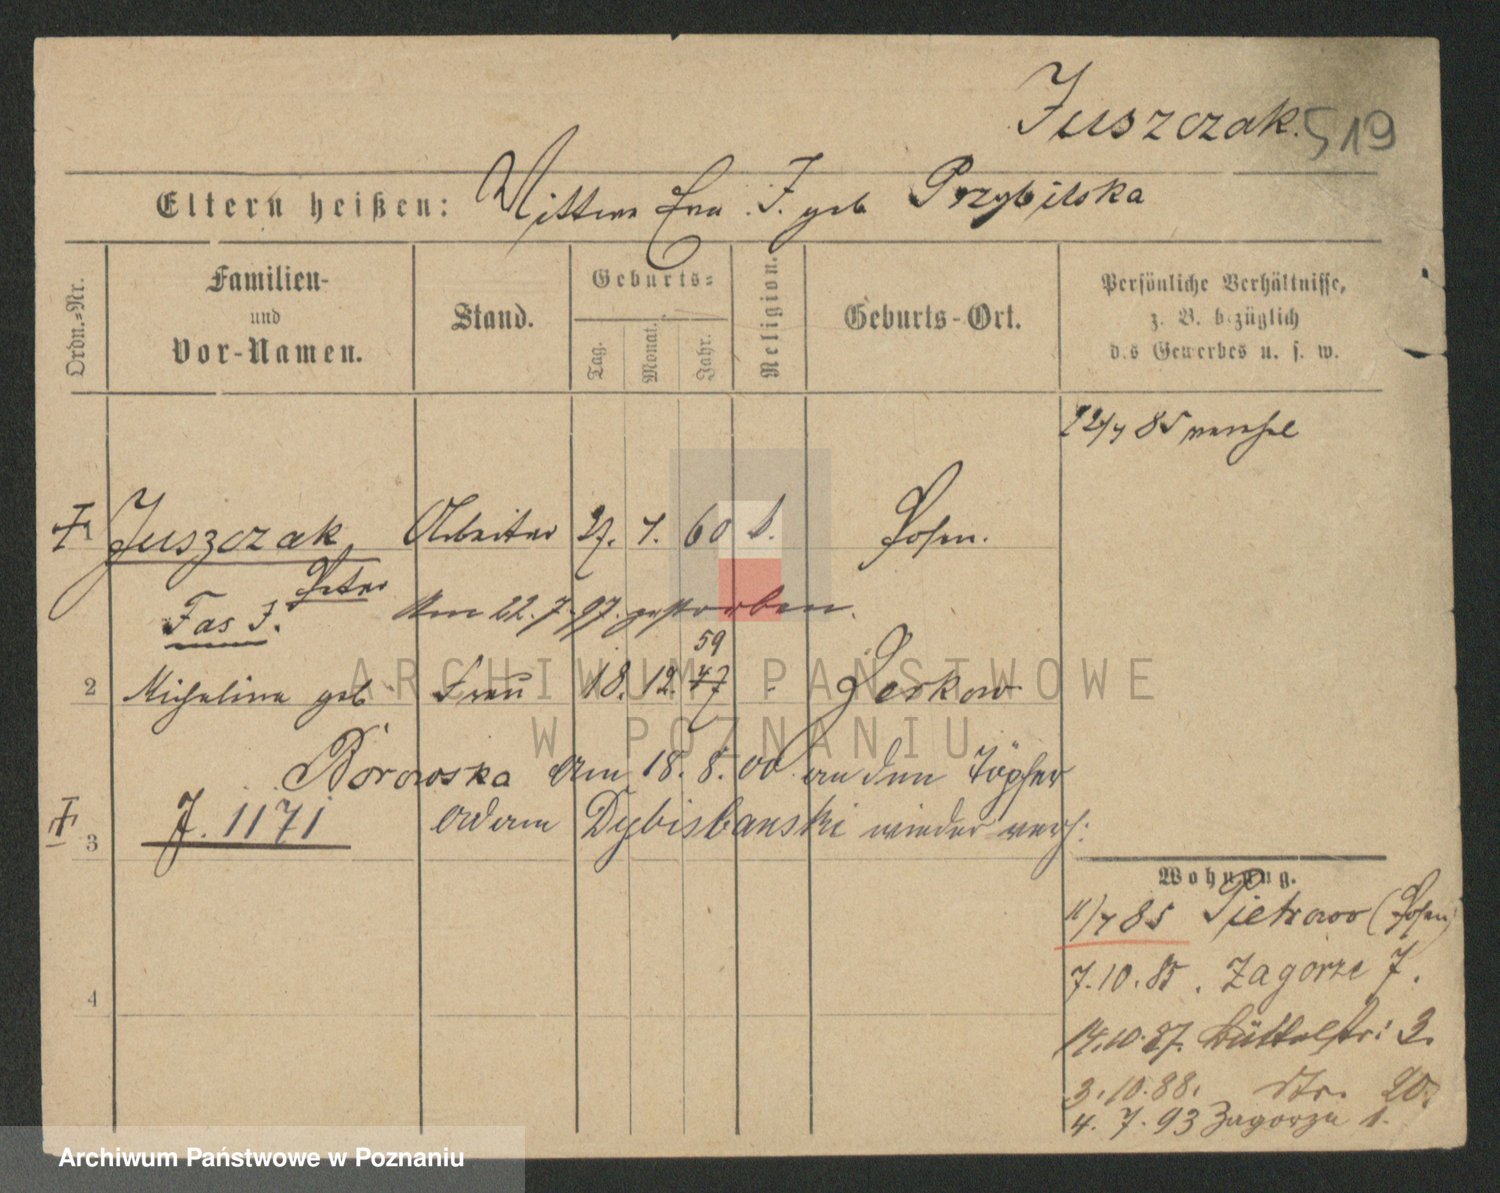 Juszczak. 519
Eltern heißen: Wittwe Eva J. geb Przybilska
Ordn.=Nr.
Familien-
und
Vor-Namen.
Stand.
Geburts=
Tag.
Monat.
Jahr.
Religion.
Geburts-Ort.
Persönliche Verhältnisse,
z. B. bezüglich
des Gewerbes u. s. w.
22/7 85
1 Juszczak Arbeiter 27. 7. 60 k. Posen.
Peter
Fas J. Am 22.7.97. gestorben.
59
2 Michalina geb Frau 18. 12. 47 Zerkow
Borowska Am 18. 8. 00 an den Töpfer
3 J. 1171 Adam Dybisbanski wieder verh:
Wohnung.
11/7 85 Pietrowo (Posen)
7.10.85. Zagorze 7.
4
14.10.87. Büttelstr: 3.
3.10.88. Str. 20.
4. 7. 93 Zagorze 1.
ARCHIWUM PAŃSTWOWE
W POZNANIU
Archiwum Państwowe w Poznaniu